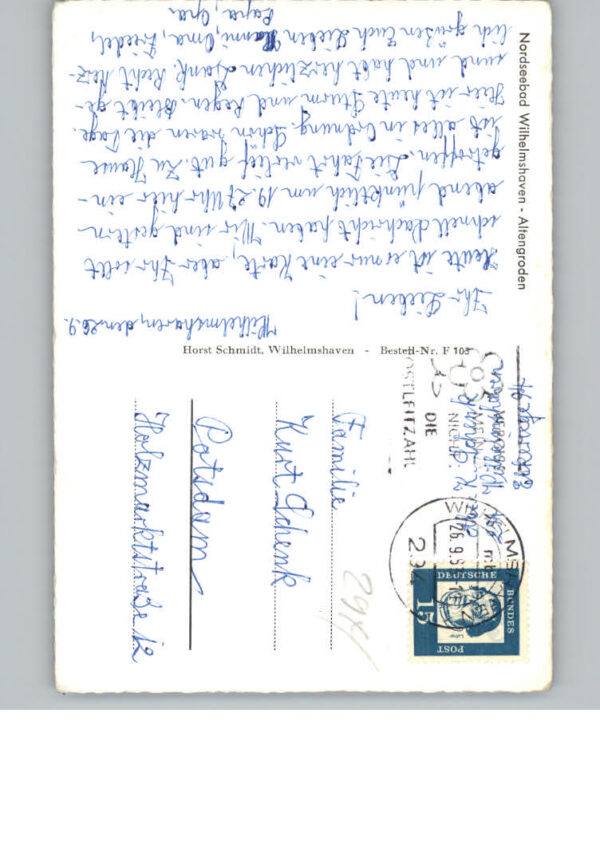 Nordseebad Wilhelmshaven - Altengroden
Wilhelmshaven, den 26.9.
Ihr Lieben!
Heute ist es nur eine Karte, aber Ihr sollt
schnell Nachricht haben. Wir sind gestern
abend pünktlich um 19.27 Uhr hier ein-
getroffen. Die Fahrt verlief gut. Zu Hause
ist alles in Ordnung. Schön waren die Tage.
Hier ist heute Sturm und Regen. Bleibt ge-
sund und habt herzlichen Dank. Recht herz-
lich grüßen Euch Lieben Hanni, Oma, Friedel,
Papa, Opa
Horst Schmidt, Wilhelmshaven - Bestell-Nr. F 103
Familie
Kurt Schenk
Potsdam
Holzmarktstraße 12
294
DIE
POSTLEITZAHL
26.9.
DEUTSCHE
BUNDES
POST
15